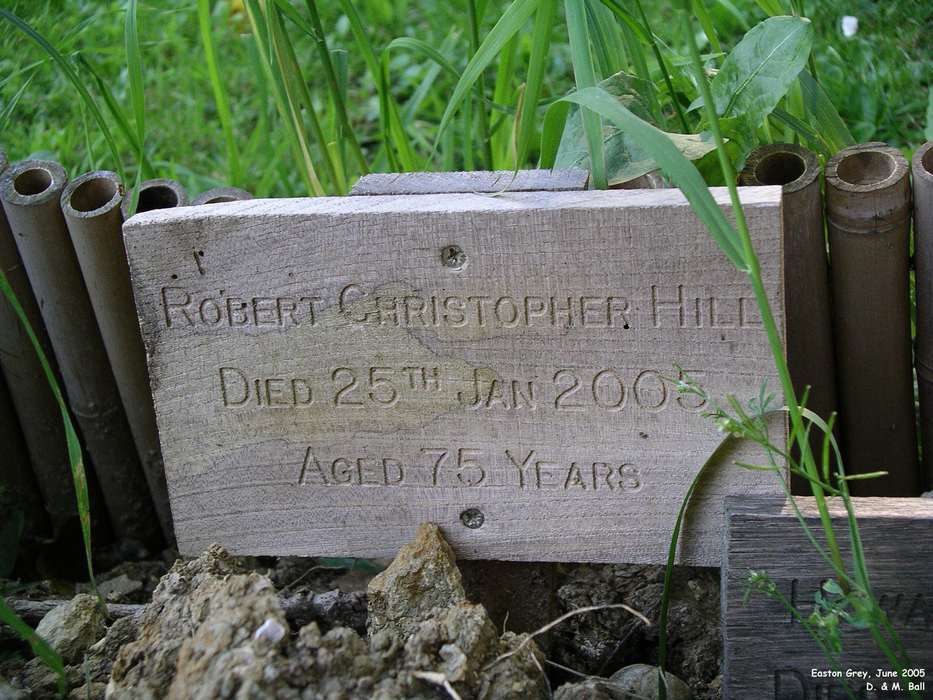 Robert Christopher Hill
Died 25TH Jan 2005
Aged 75 Years
Easton Grey, June 2005
D. & M. Ball